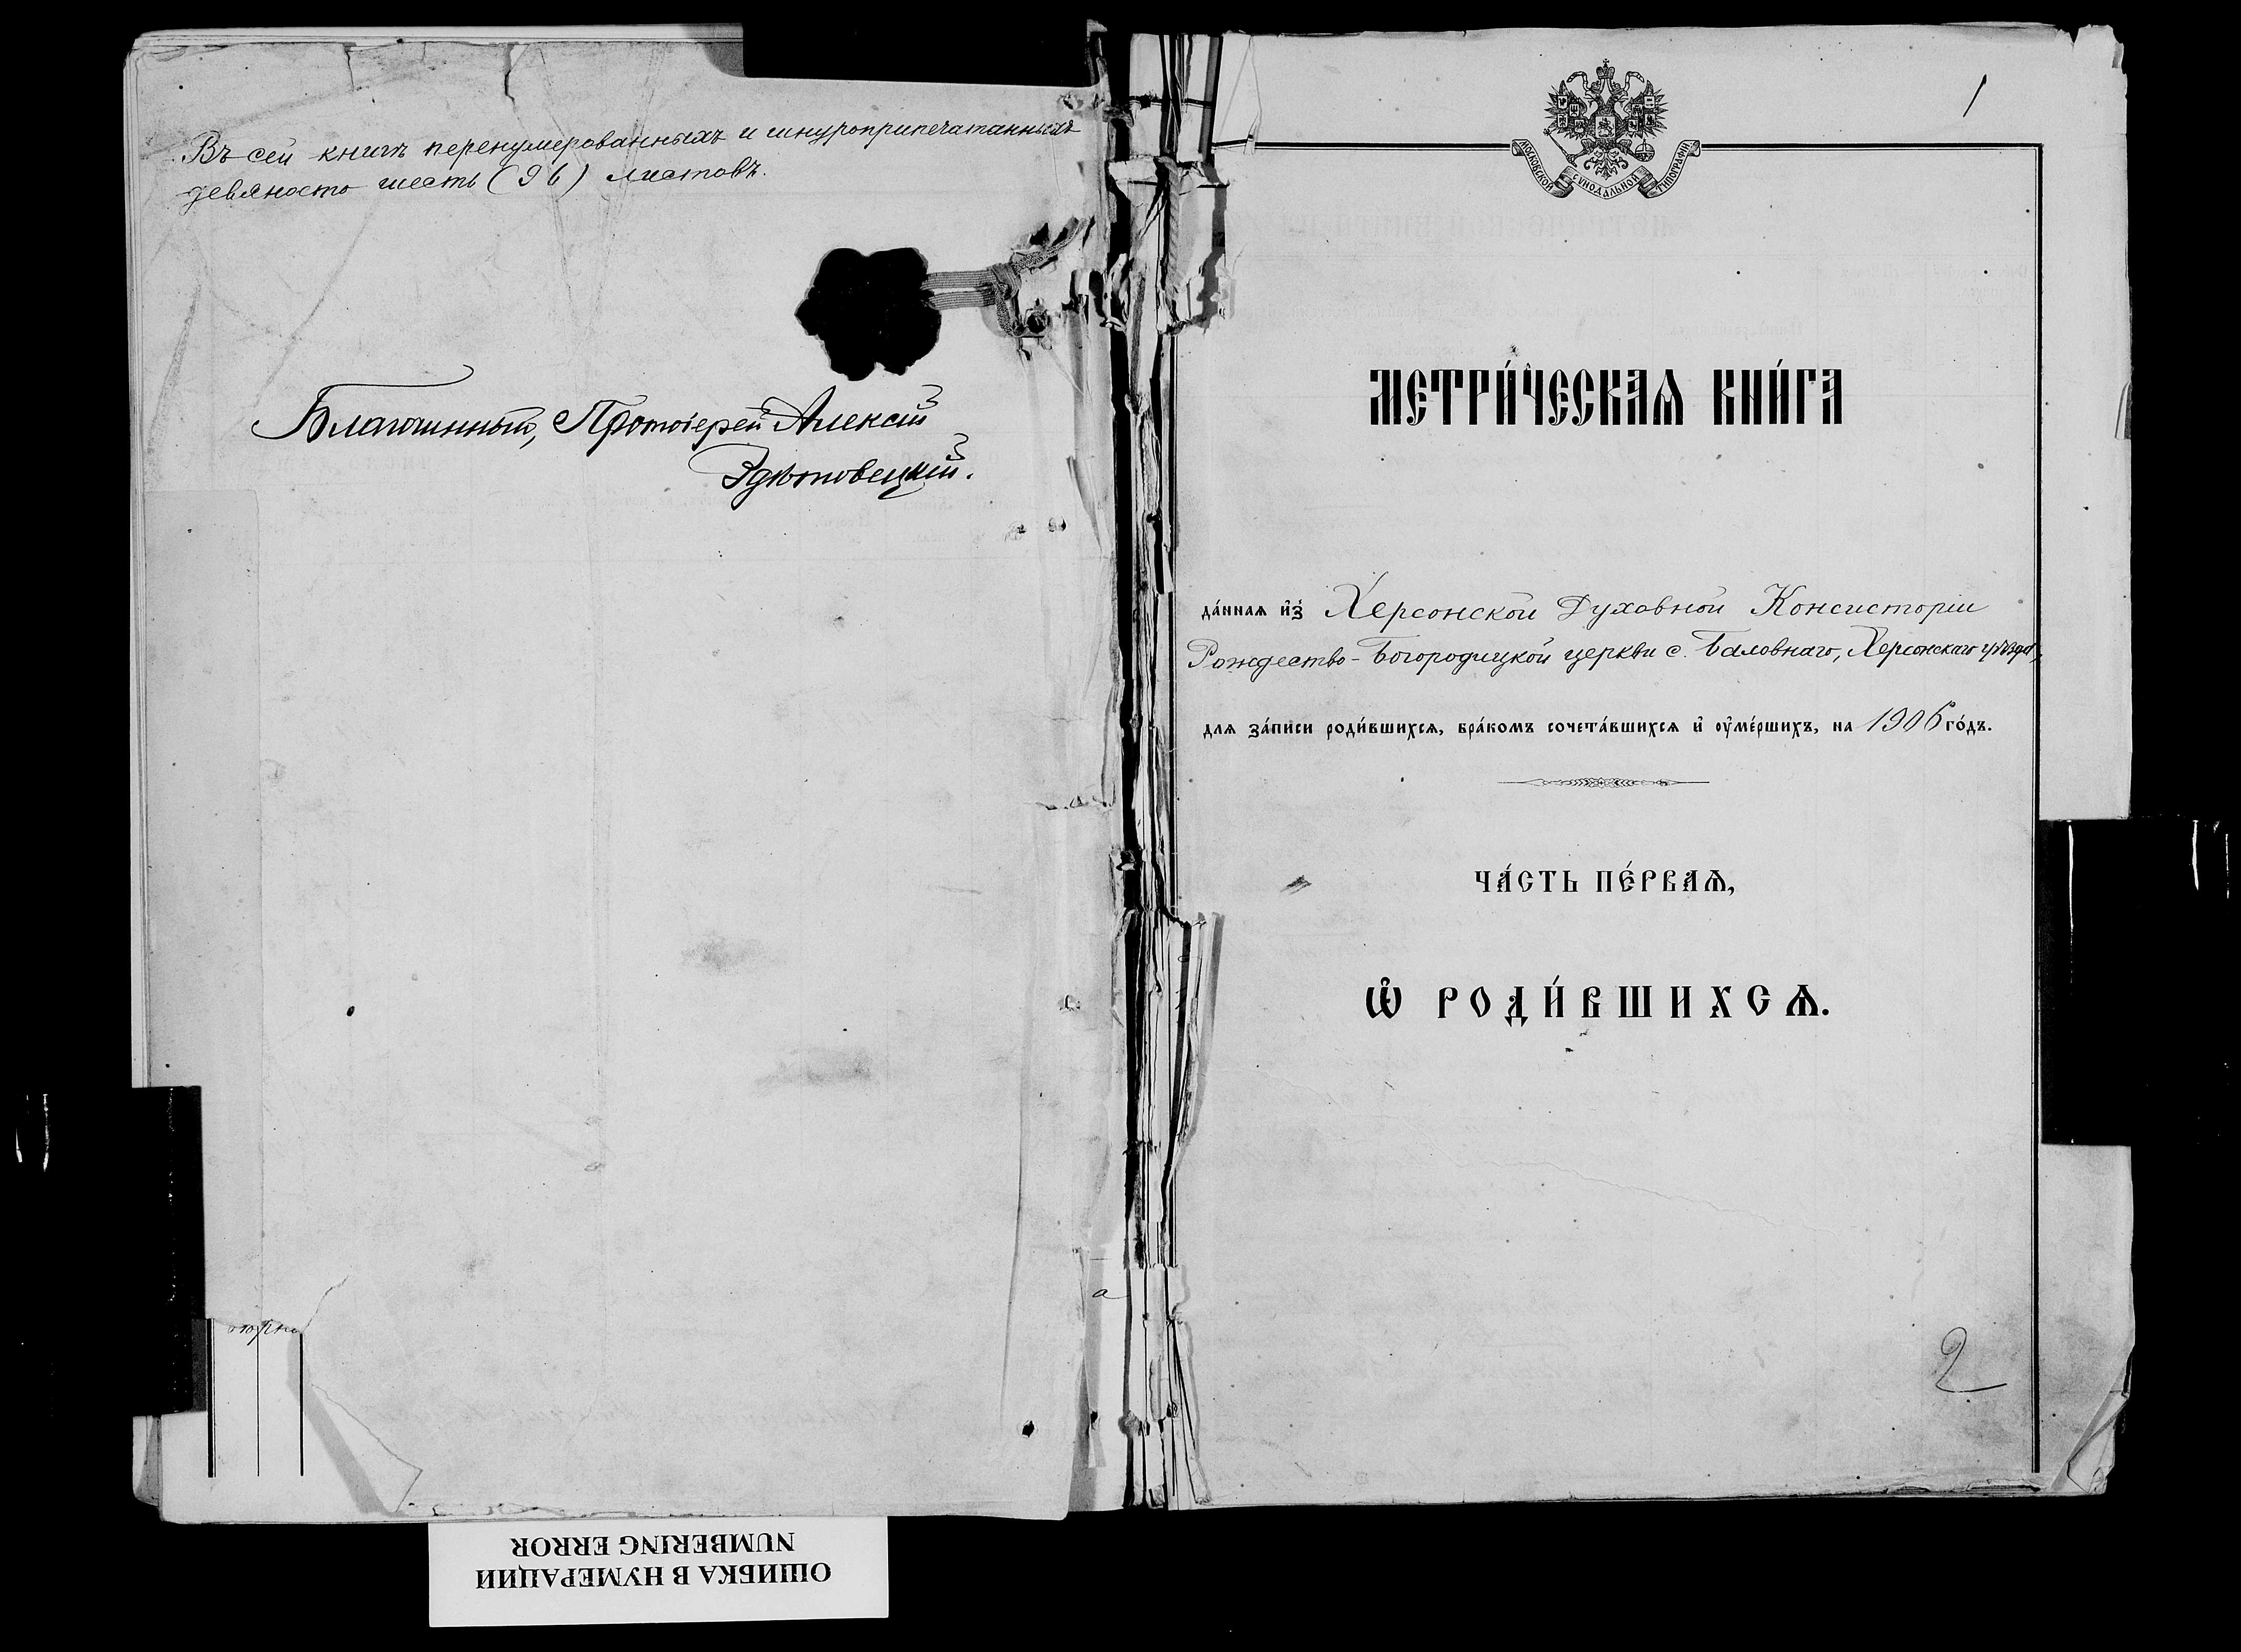 Въ сей книгѣ перенумерованныхъ и шнуроприпечатанныхъ
девяносто шесть (96) листовъ.
Благочинный, Протоіерей Алексій
ОШИБКА В НУМЕРАЦИИ
NUMBERING ERROR
1
МОСКОВСКОЙ СѴНОДАЛЬНОЙ ТИПОГРАФІИ
МЕТРИ́ЧЕСКАѦ КНИ́ГА
да́ннаѧ и҆з̾ Херсонской Духовной Консисторіи
Рождество-Богородицкой церкви с. Баловнаго, Херсонскаго уѣзда,
длѧ за́писи роди́вшихсѧ, бра́комъ сочета́вшихсѧ и҆ оу҆ме́ршихъ, на 1906 го́дъ.
ЧА́СТЬ ПЕ́РВАѦ,
Ѡ҆ РОДИ́ВШИХСѦ.
2